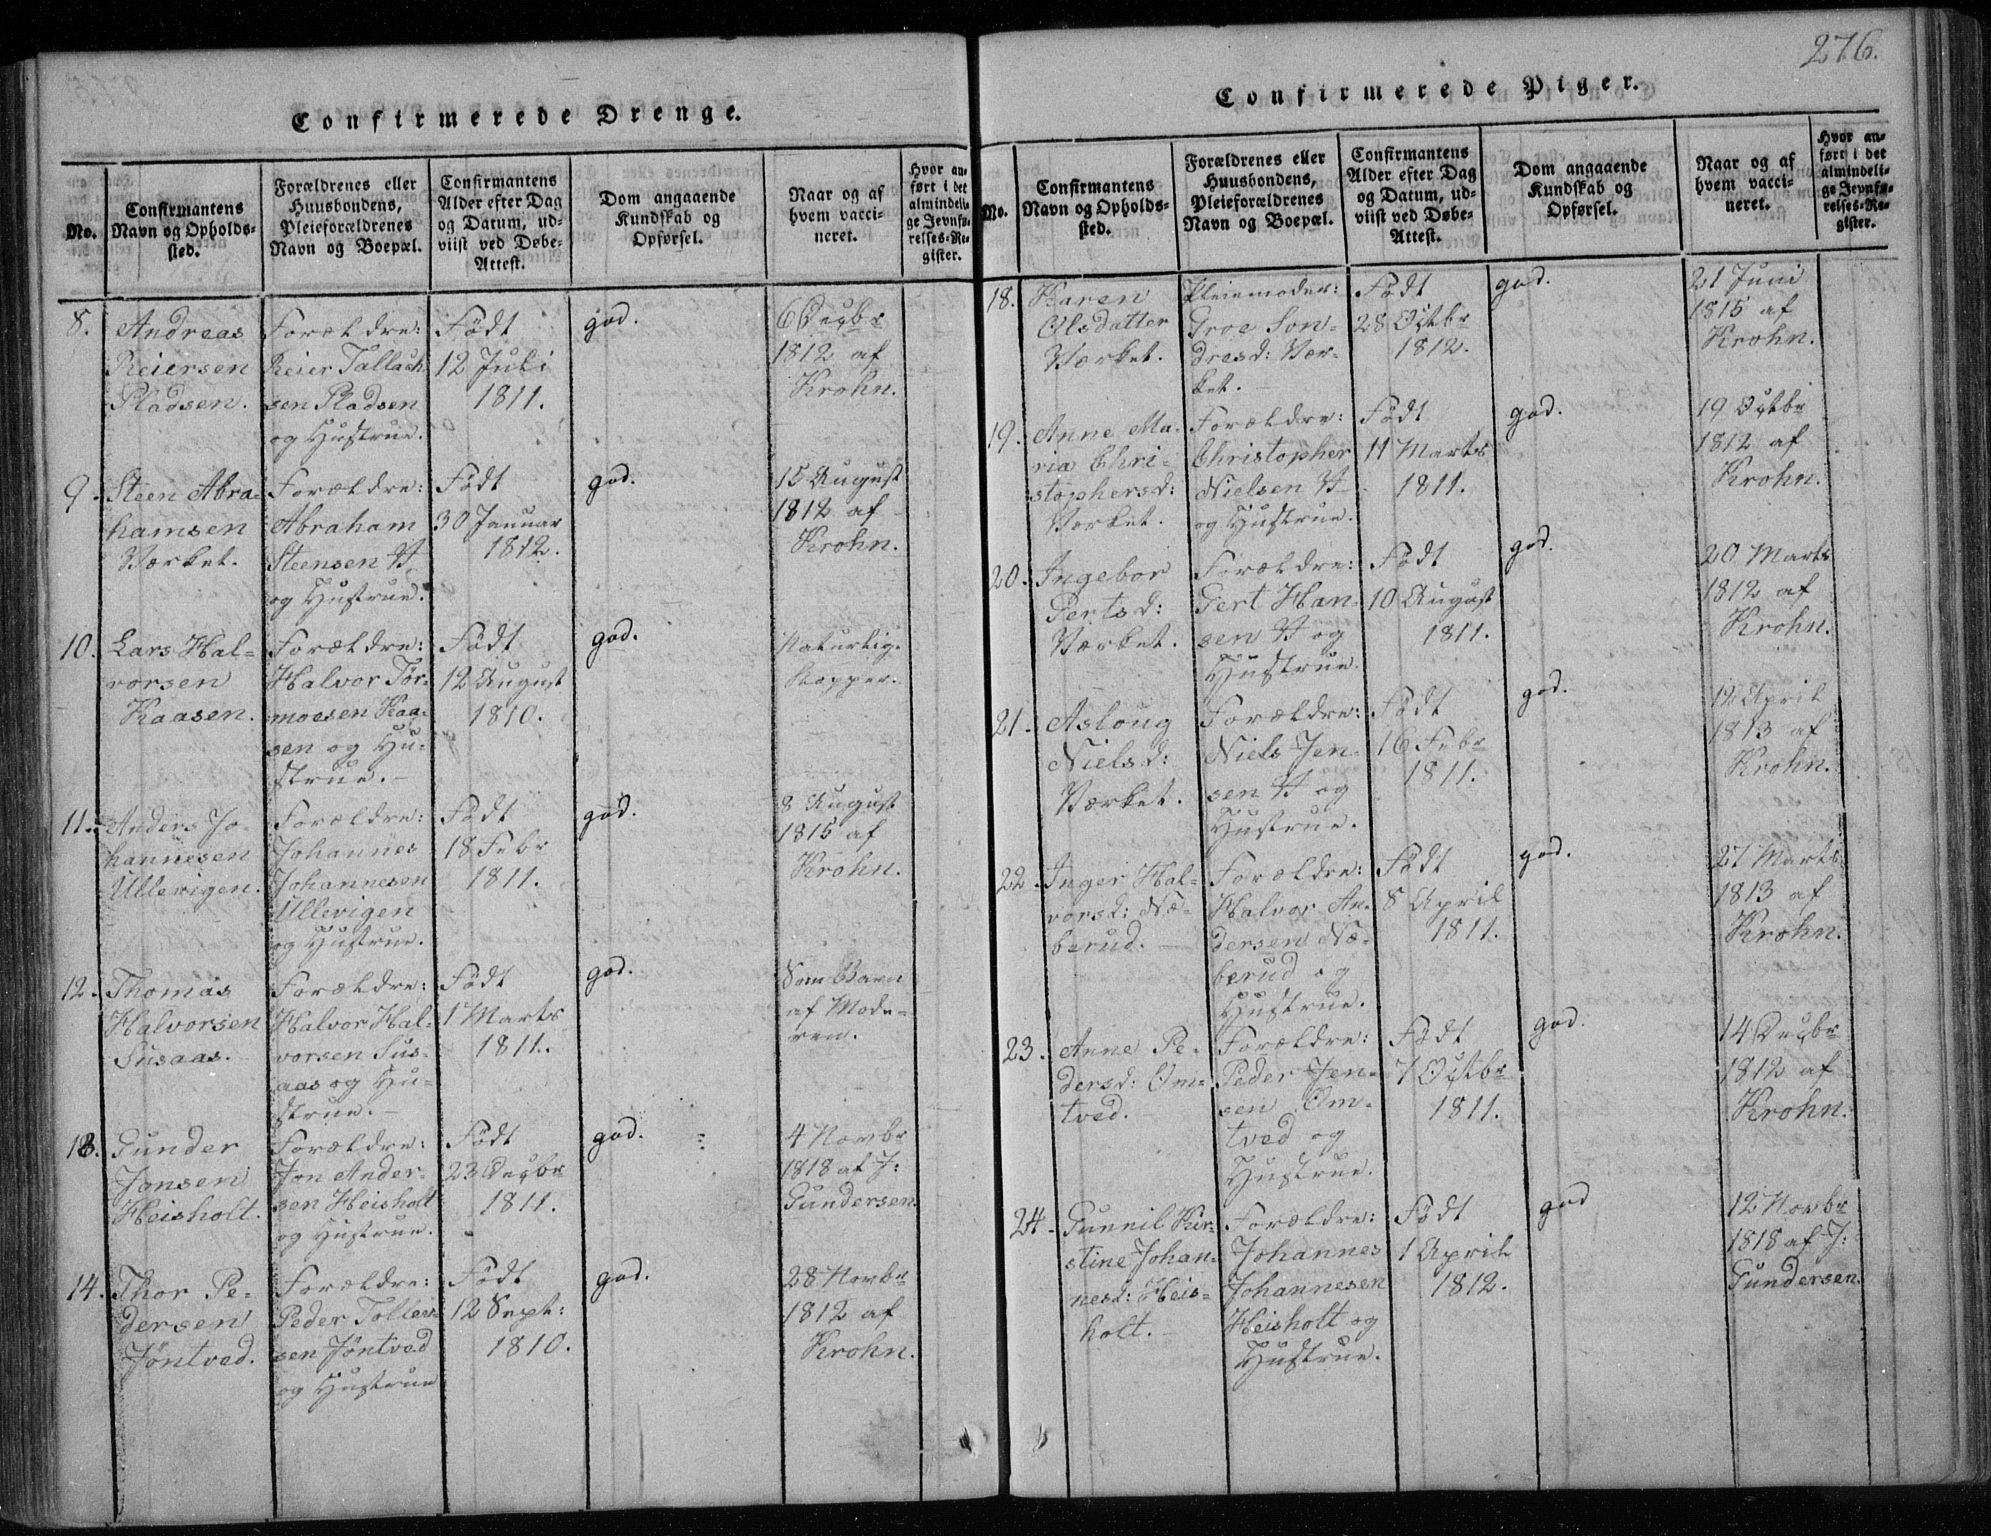 276.
Confirmerede Drenge.
No.
Confirmantens
Navn og Opholds-
sted.
Forældrenes eller
Huusbondens,
Pleieforældrenes
Navn og Boepæl.
Confirmantens
Alder efter Dag
og Datum, ud-
viist ved Døbe-
Attest.
Dom angaaende
Kundskab og
Opførsel.
Naar og af
hvem vacci-
neret.
Hvor an-
ført i det
almindeli-
ge Jevnfø-
relses-Re-
gister.
8.
Andreas
Reiersen
Pladsen.
Forældre:
Reier Tallach
sen Pladsen
og Hustrue.
Født
12 Juli
1811.
god.
6 Decbr
1812 af
Krohn.
9.
Steen Abra-
hamsen
Værket.
Forældre:
Abraham
Steensen V
og Hustrue.
Født
30 Januar
1812.
god.
15 August
1812 af
Krohn.
10.
Lars Hal-
vorsen
Kaasen.
Forældre:
Halvor Tør-
moesen Kaa-
sen og Hu-
strue.-
Født
12 August
1810.
god.
Naturlig.
Kopper.
11.
Anders Jo-
hannesen
Ullevigen.
Forældre:
Johannes
Johannesen
Ullevigen
og Hustrue.
Født
18 Febr
1811.
god.
8 August
1815 af
Krohn.
12.
Thomas
Halvorsen
Susaas.
Forældre:
Halvor Hal-
vorsen Sus-
aas og Hu-
strue.-
Født
1 Marts
1811.
god.
Som Barn
af Mode-
ren.
13.
Gunder
Jonsen
Heisholt.
Forældre:
Jon Ander-
sen Heisholt
og Hustrue.
Født
23 Decbr
1811.
god.
4 Novbr
1818 af J:
Gundersen.
14.
Thor Pe-
dersen
Jøntved.
Forældre:
Peder Tollev-
sen Jøntved
og Hustrue
Født
12 Sept:
1810.
god.
28 Novbr
1812 af
Krohn.
Confirmerede Piger.
No.
Confirmantens
Navn og Opholds-
sted.
Forældrenes eller
Huusbondens,
Pleieforældrenes
Navn og Boepæl.
Confirmantens
Alder efter Dag
og Datum, ud-
viist ved Døbe-
Attest.
Dom angaaende
Kundskab og
Opførsel.
Naar og af
hvem vacci-
neret.
Hvor an-
ført i det
almindeli-
ge Jevnfø-
relses-Re-
gister.
18.
Karen
Olsdatter
Værket.
Pleiemoder:
Groe Son-
dresd: Vær-
ket.-
Født
28 Octbr
1812.
god.
21 Juni
1815 af
Krohn.
19.
Anne Ma-
ria Chri-
stophersd:
Værket.
Forældre:
Christopher
Nielsen V
og Hustrue.
Født
11 Marts
1811.
god.
19 Octbr
1812 af
Krohn.
20.
Ingebor
Gertsd:
Værket.
Forældre:
Gert Han-
sen V og
Hustrue.
Født
10 August
1811.
god.
20 Marts
1812 af
Krohn.
21.
Asloug
Nielsd:
Værket.
Forældre:
Niels Jen-
sen V og
Hustrue.
Født
16 Febr
1811.
god.
12 April
1813 af
Krohn.
22.
Inger Hal-
vorsd: Næ-
berud.-
Forældre:
Halvor An-
dersen Næ-
berud og
Hustrue.
Født
8 April
1811.
god.
27 Marts
1813 af
Krohn.
23.
Anne Pe-
dersd: Om-
tved.-
Forældre:
Peder Jen-
sen Om-
tved og
Hustrue.
Født
7 Octbr
1811.
god.
14 Decbr
1812 af
Krohn.
24.
Gunnil Kir-
stine Johan-
nesd: Heis-
holt.-
Forældre:
Johannes
Johannesen
Heisholt og
Hustrue.
Født
1 April
1812.
god
12 Novbr
1818 af J:
Gundersen.